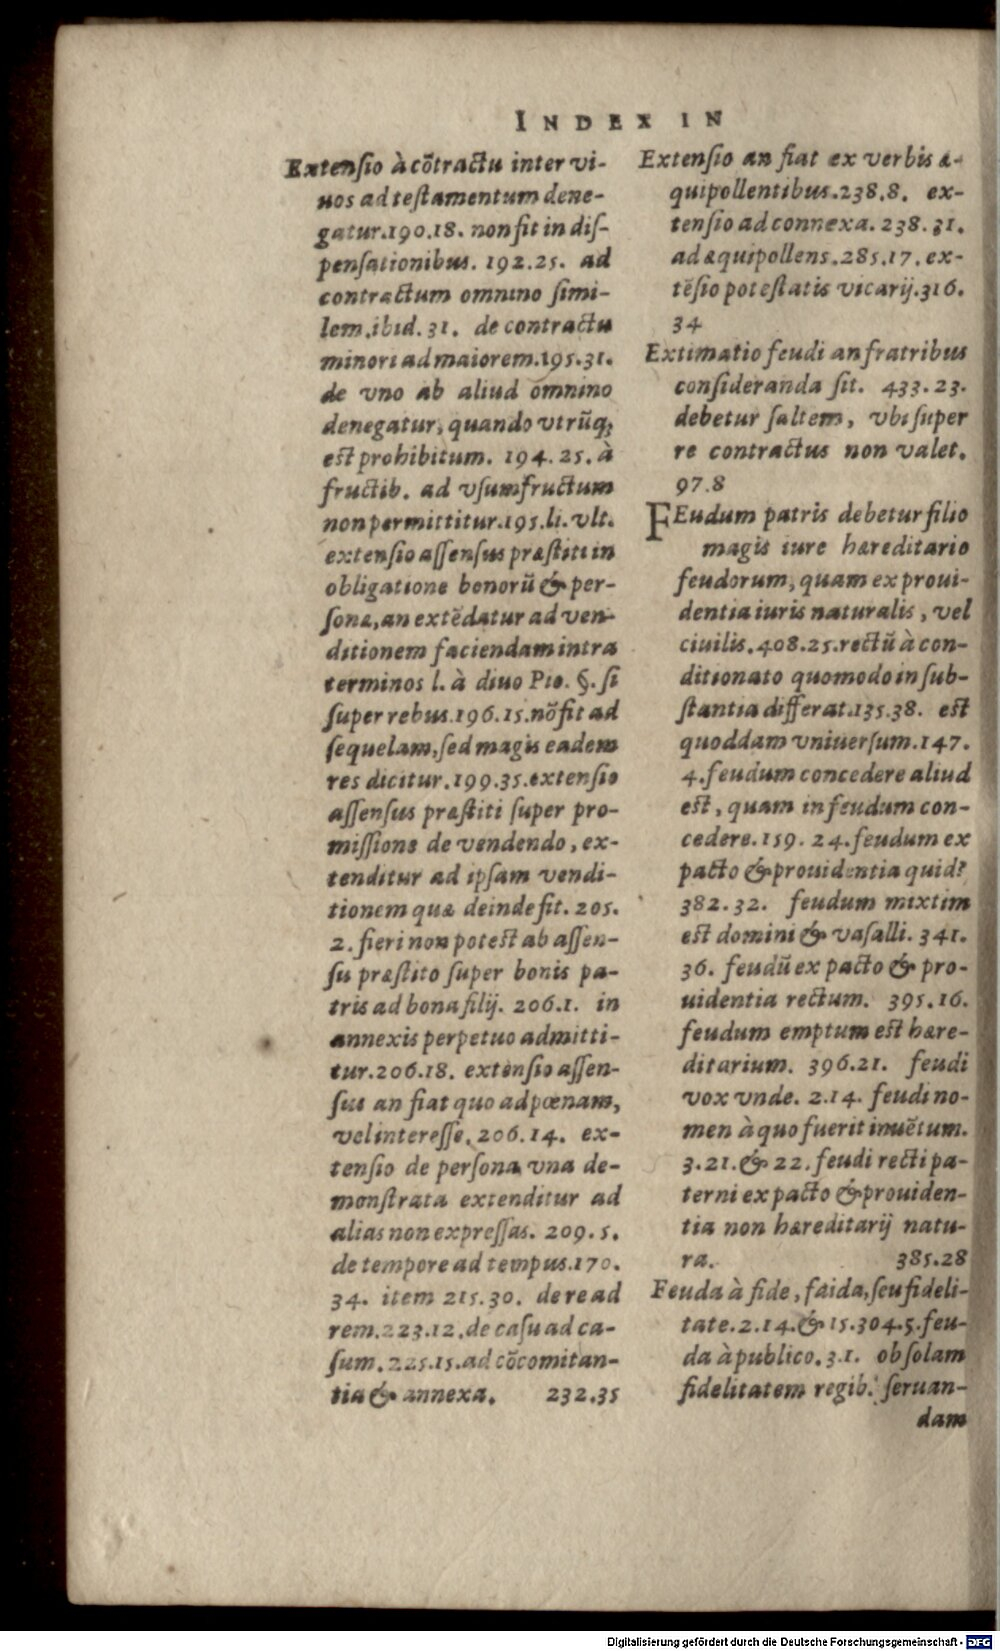 INDEX IN
Extensio à cõtractu inter vi-
uos ad testamentum dene-
gatur.190.18. non fit in dis-
pensationibus. 192.25. ad
contractum omnino simi-
lem.ibid. 31. de contractu
minori ad maiorem.195.31.
de vno ab aliud omnino
denegatur, quando vtrũq;
est prohibitum. 194.25. à
fructib. ad vsumfructum
non permittitur.195.li.vlt.
extensio assensus præstiti in
obligatione bonorũ & per-
sonæ, an extẽdatur ad ven-
ditionem faciendam intra
terminos l. à diuo Pio. §. si
super rebus.196.15.nõ fit ad
sequelam, sed magis eadem
res dicitur.199.35.extensio
assensus præstiti super pro-
missione de vendendo, ex-
tenditur ad ipsam vendi-
tionem quæ deinde fit. 205.
2. fieri non potest ab assen-
su præstito super bonis pa-
tris ad bona filij. 206.1. in
annexis perpetuo admitti-
tur.206.18. extensio assen-
sus an fiat quo ad pœnam,
vel interesse. 206.14. ex-
tensio de persona vna de-
monstrata extenditur ad
alias non expressas. 209.5.
de tempore ad tempus.170.
34. item 215.30. de re ad
rem.223.12.de casu ad ca-
sum.225.15.ad cõcomitan-
tia & annexa. 232.35
Extensio an fiat ex verbis æ-
quipollentibus.238.8. ex-
tensio ad connexa. 238.31.
ad æquipollens.285.17.ex-
tẽsio potestatis vicarij.316.
34
Extimatio feudi an fratribus
consideranda sit. 433.23.
debetur saltem, vbi super
re contractus non valet.
97.8
FEudum patris debetur filio
magis iure hæreditario
feudorum, quam ex proui-
dentia iuris naturalis, vel
ciuilis.408.25.rectũ à con-
ditionato quomodo in sub-
stantia differat.135.38. est
quoddam vniuersum.147.
4.feudum concedere aliud
est, quam in feudum con-
cedere.159. 24.feudum ex
pacto & prouidentia quid?
382.32. feudum mixtim
est domini & vasalli. 341.
36. feudũ ex pacto & pro-
uidentia rectum. 395.16.
feudum emptum est hære-
ditarium. 396.21. feudi
vox vnde. 2.14. feudi no-
men à quo fuerit inuẽtum.
3.21.& 22.feudi recti pa-
terni ex pacto & prouiden-
tia non hæreditarij natu-
ra. 385.28
Feuda à fide, faida, seu fideli-
tate.2.14.& 15.304.5.feu-
da à publico.3.1. ob solam
fidelitatem regib. seruan-
dam
Digitalisierung gefördert durch die Deutsche Forschungsgemeinschaft - DFG